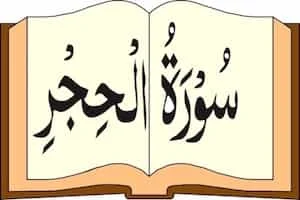 سُوْرَةُ الْحِجُرِ